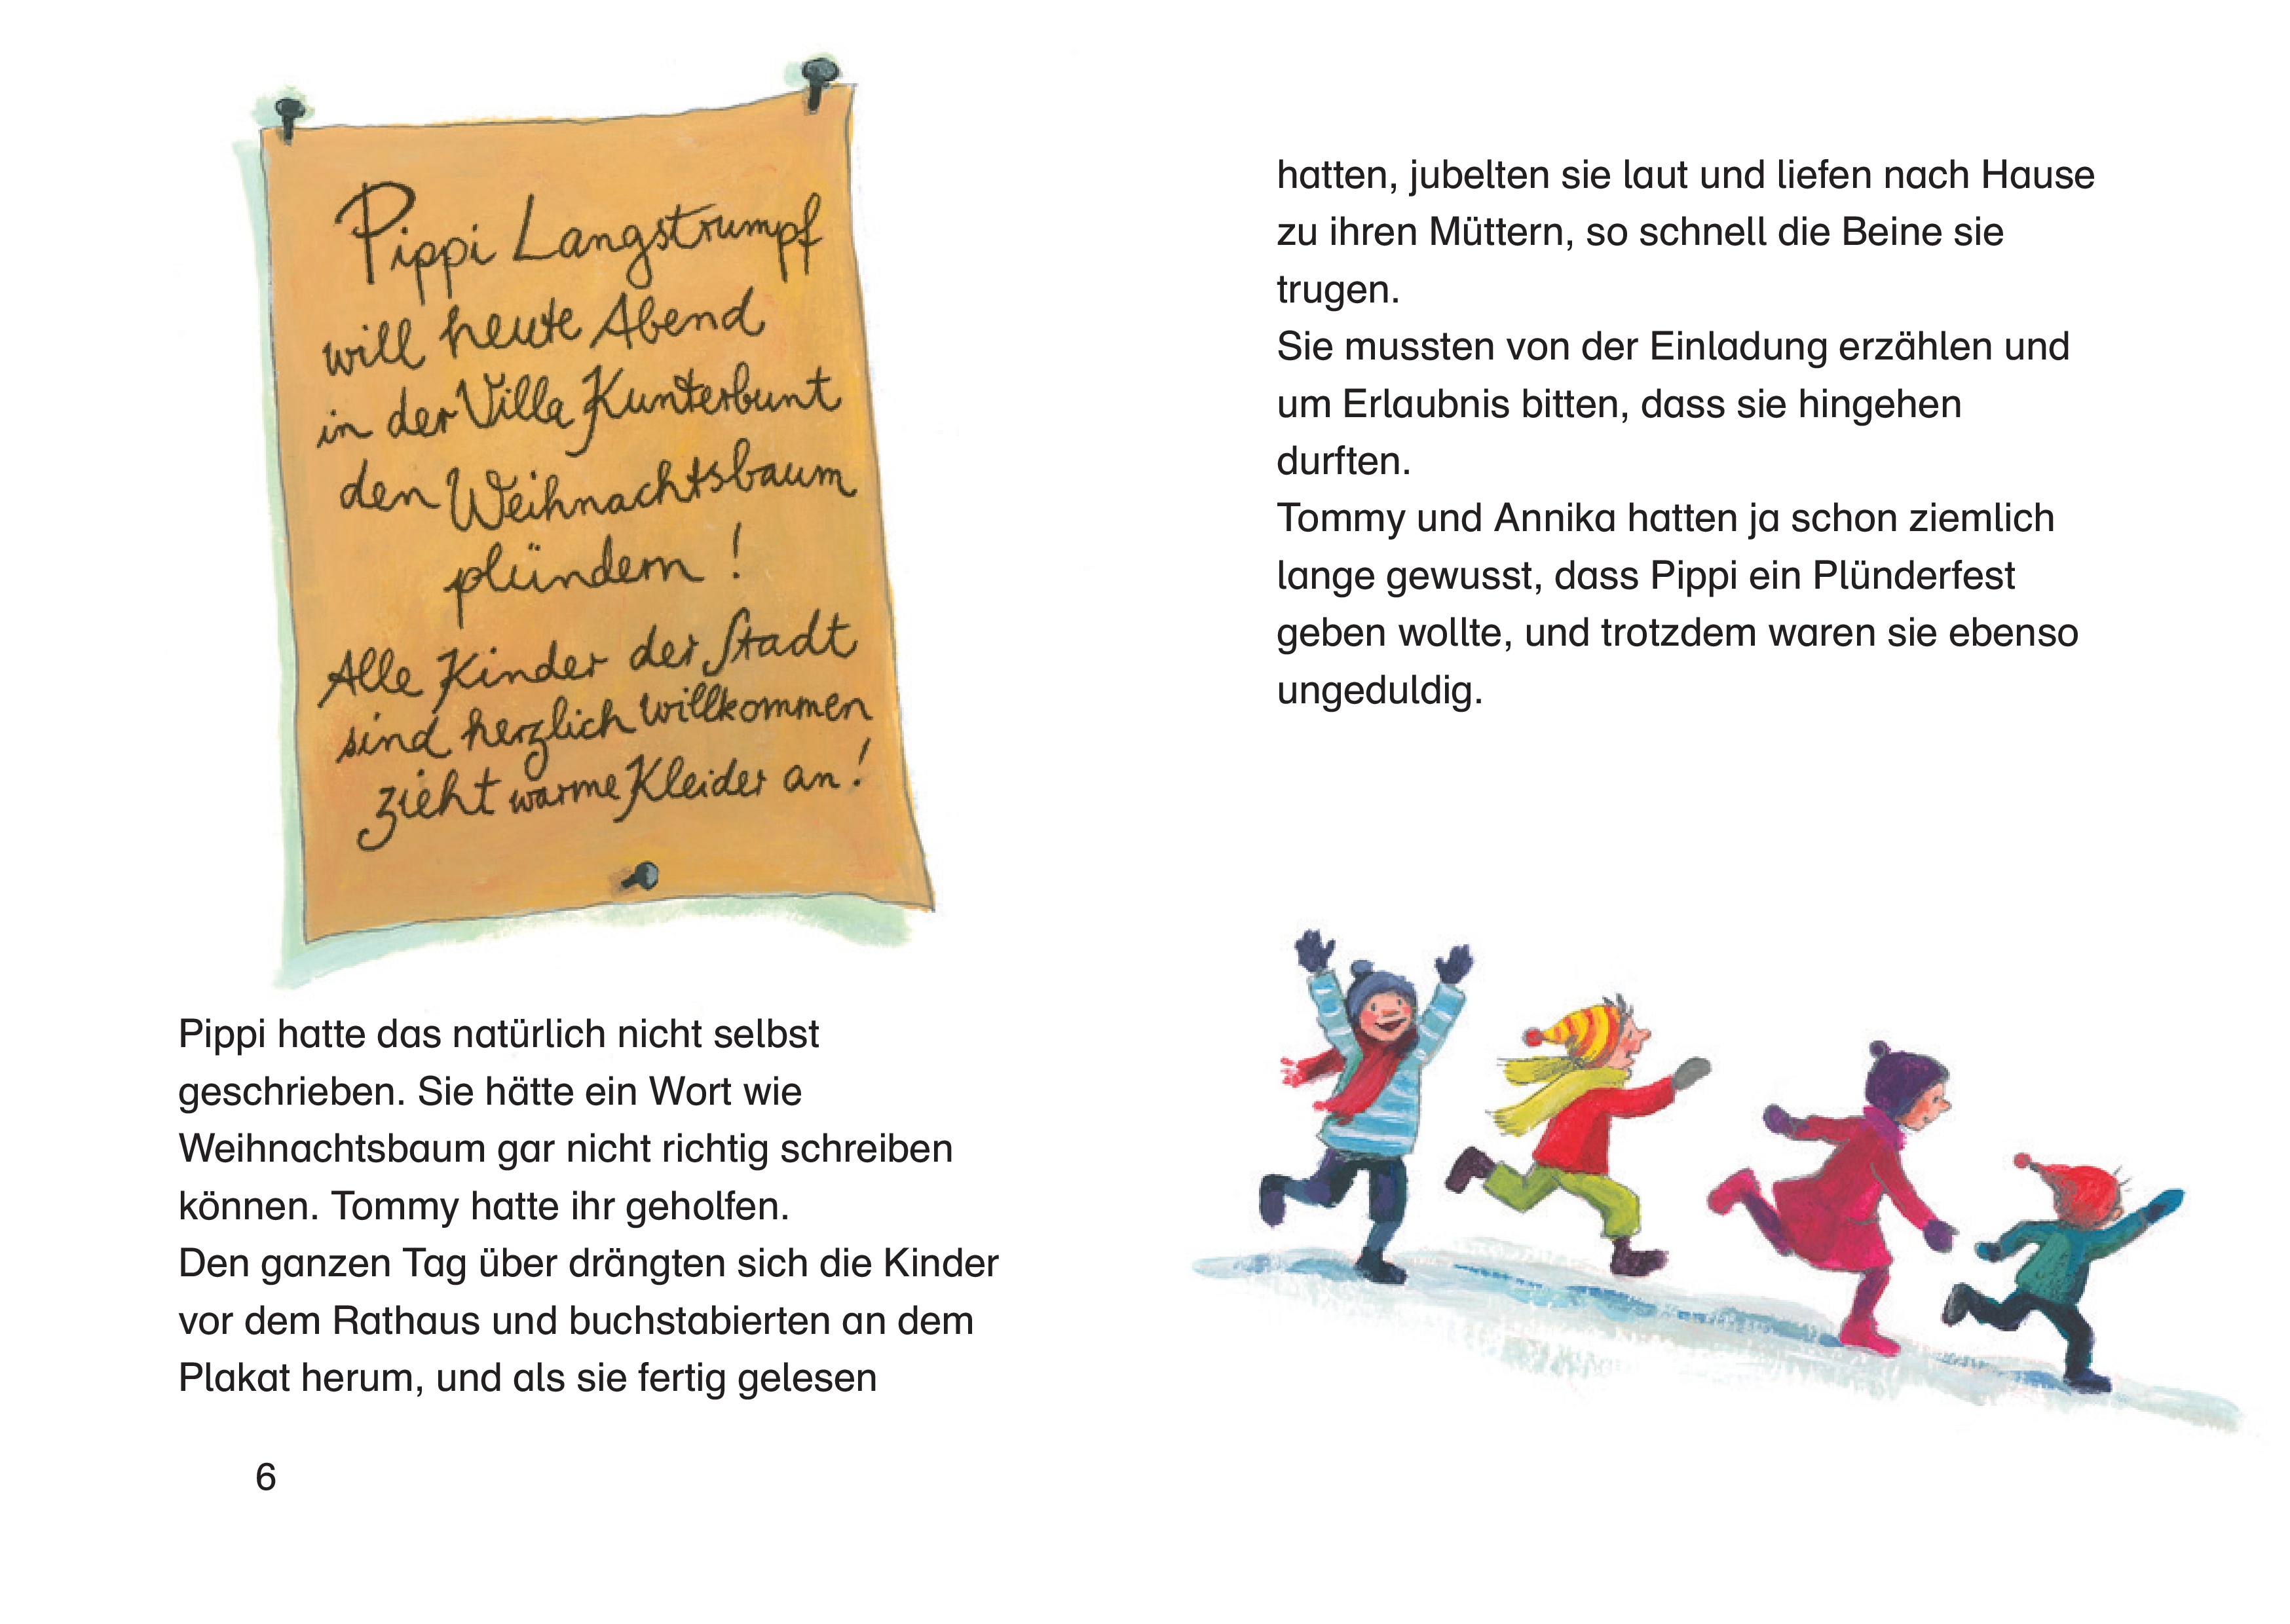 Pippi Langstrumpf
will heute Abend
in der Villa Kunterbunt
den Weihnachtsbaum
plündern !
Alle Kinder der Stadt
sind herzlich willkommen
zieht warme Kleider an!
Pippi hatte das natürlich nicht selbst
geschrieben. Sie hätte ein Wort wie
Weihnachtsbaum gar nicht richtig schreiben
können. Tommy hatte ihr geholfen.
Den ganzen Tag über drängten sich die Kinder
vor dem Rathaus und buchstabierten an dem
Plakat herum, und als sie fertig gelesen
6
hatten, jubelten sie laut und liefen nach Hause
zu ihren Müttern, so schnell die Beine sie
trugen.
Sie mussten von der Einladung erzählen und
um Erlaubnis bitten, dass sie hingehen
durften.
Tommy und Annika hatten ja schon ziemlich
lange gewusst, dass Pippi ein Plünderfest
geben wollte, und trotzdem waren sie ebenso
ungeduldig.